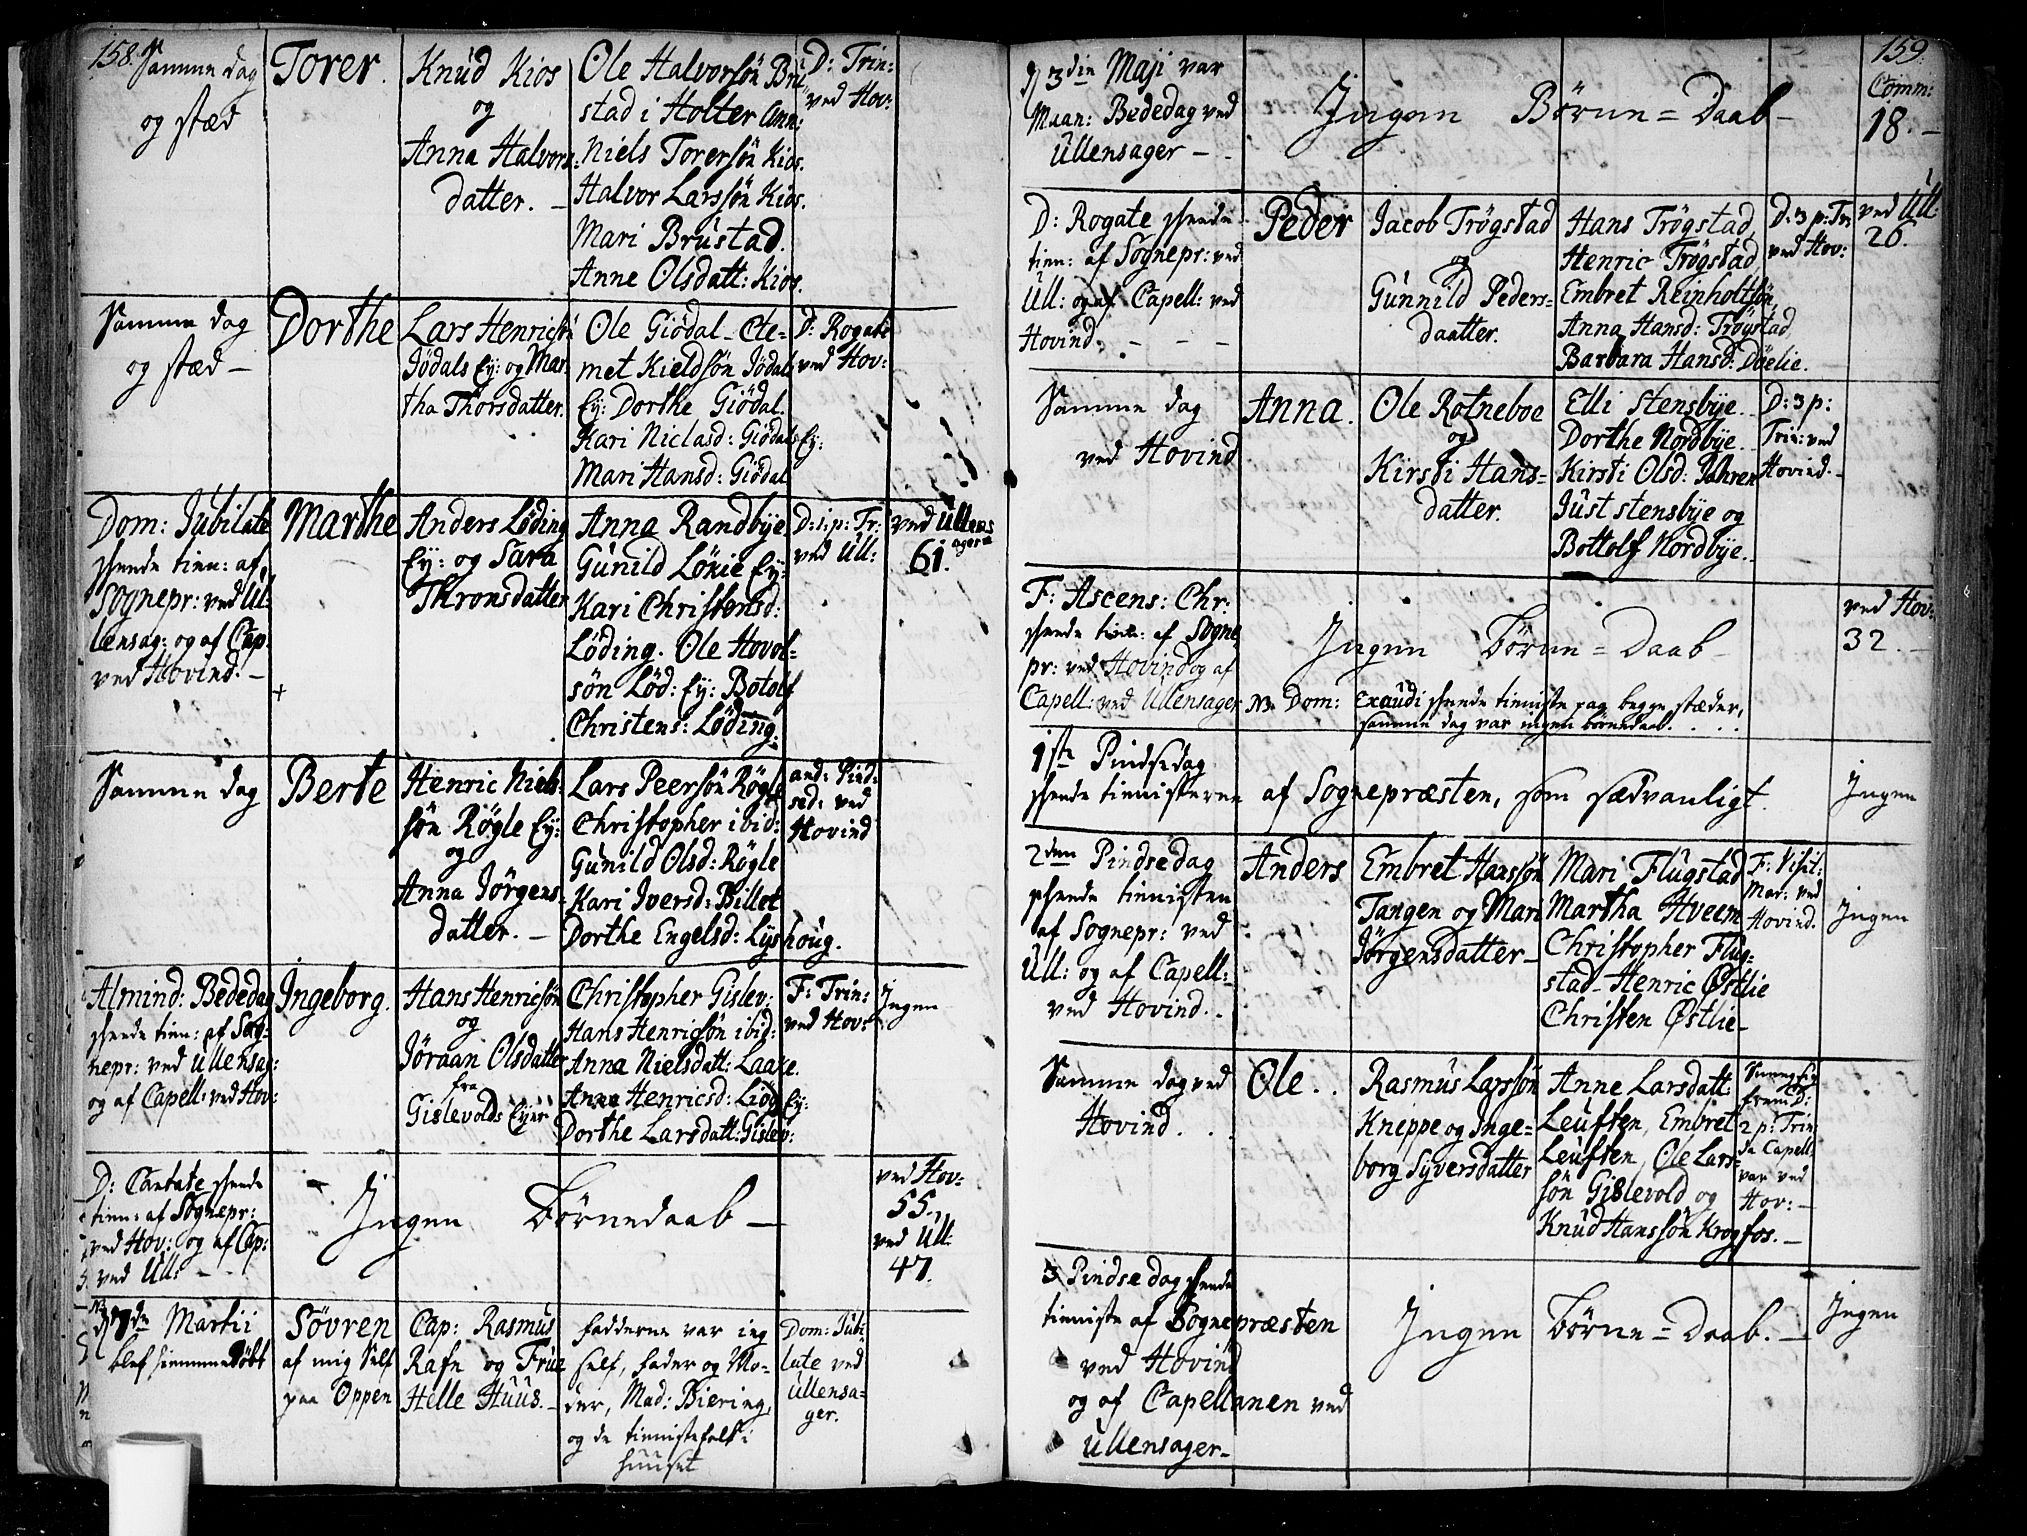 158.
Samme dag
og stæd
Torer.
Knud Kios
og
Anna Halvors-
datter. -
Ole Halvorsön Bru-
stad i Holter Ann:
Niels Torersön Kios.
Halvor Larssön Kios.
Mari Brustad.
Anne Olsdatt: Kios.
D: Trin:
ved Hov:
Samme dag
og stæd -
Dorthe
Lars Henrichsön
Jödals Ey: og Mar-
tha Thorsdatter.
Ole Giödal - Cle-
met Kieldsön Jödals
Ey: Dorthe Giödal.
Kari Niclasd: Giödals Ey:
Mari Hansd: Giödal
D: Rogate
ved Hov:
Dom: Jubilate
skeede tien: af
Sognepr: ved Ul-
lensag: og af Cap.
ved Hovind. -
Marthe
Anders Löding
Ey: og Sara
Thronsdatter
Anna Randbye
Gunild Lökie Ey:
Kari Christensd:
Löding. Ole Hovol-
sön Löd: Ey: Botolf
Christens: Löding.
D: 1 p: Tr:
ved Ull:
ved Ullens
ager
61.
Samme dag
Berte
Henric Niels-
sön Rögle Ey:
og
Anna Jörgens-
datter. -
Lars Peersön Rögle
Christopher ibid:
Gunild Olsd: Rögle
Kari Iversd: Billet
Dorthe Engelsd: Lyshoug.
and: Pind-
sed: ved
Hovind
Almind: Bededag
skeede tien: af Sog-
nepr: ved Ullensag:
og af Capell: ved Hov:
Ingeborg.
Hans Henricsön
og
Jöraan Olsdatter
fra
Gislevolds Eyer
Christopher Gislev:
Hans Henricsön ibid:
Anna Nielsdatt: Laake.
Anne Henricsd: Liög Ey:
Dorthe Larsdatt: Gislev:
F: Trin:
ved Hov:
Ingen
D: Cantate skeede
tien: af Sognepr:
ved Hov: og af Cap:
ved Ull: -
Ingen Börnedaab -
ved Hov:
55.
ved Ull:
47.
d 7de Martii
blef hiemmedöbt
Sövren
af mig Self
paa Oppen
Cap: Rasmus
Rafn og Frue
Helle Huus. -
Fadderne var ieg
self, Fader og Mo-
der, Mad: Biering,
og de tienistefolk i
huuset
Dom: Jubi
late ved
Ullensa-
ger.
159.
Comm:
d 3die Maji var
Maan: Bededag ved
Ullensager -
Ingen Börne=Daab -
18. -
D: Rogate skeede
tien: af Sognepr: ved
Ull: og af Capell: ved
Hovind. - - -
Peder
Jacob Trögstad
og
Gunnild Peders-
daatter.
Hans Trögstad,
Henric Trögstad
Embret Reinholtsön,
Anna Hansd: Trögstad,
Barbara Hansd: Döelie.
D: 3 p: Tri
ved Hov:
ved Ull
26.
Samme dag
ved Hovind
Anna.
Ole Rotneboe
og
Kirsti Hans-
datter.
Elli Stensbye
Dorthe Nordbye
Kirsti Olsd: Jahren
Just Stensbye og
Bottolf Nordbye.
D: 3 p:
Trin: ved
Hovind. -
F: Ascens: Chr:
skeede tien: af Sogne
pr: ved Hovind og af
Capell: ved Ullensager
Ingen Börne=Daab -
ved Hov:
32. -
NB Dom: Exaudi skeede tieniste paa begge stæder,
samme dag var ingen börnedaab.
1ste Pindsedag
skeede tienisterne af Sognepræsten, som sædvanligt.
Ingen
2den Pindsedag
skeede tienisten
af Sognepr: ved
Ull: og af Capell:
ved Hovind. -
Anders
Embret Hanssön
Tangen og Mari
Jörgensdatter -
Mari Flugstad
Martha Hveem
Christopher Flug-
stad - Henric Østlie
Christen Østlie -
F: Visit:
Mar: ved
Hovind.
Ingen
Samme dag ved
Hovind.
Ole.
Rasmus Larssön
Kneppe og Inge-
borg Syversdatter
Anne Larsdatt:
Leufsen, Embret
Leufsen, Ole Lars-
sön Gislevold og
Knud Hanssön Krogfos. -
frem D:
2 p: Trin:
da Capell:
var ved
Hov: -
3 Pindsedag skeede
tieniste af Sognepræsten
ved Hovind
og af Capellanen ved
Ullensager -
Ingen Börne=Daab. -
Ingen